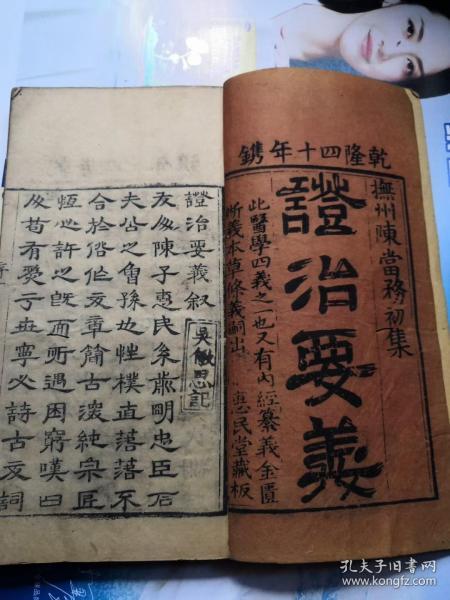 乾隆四十年鐫
撫州陳當務初集
證治要義
此醫學四義之一也又有內經纂義金匱
斷義本草條義嗣出 惠民堂藏板
證治要義叙
吳敏思記
友人陳子惠民系前明忠臣后
夫公之曾孫也性樸直落落不
合於俗作文章簡古深純宗匠
恆心許之旣而所遇困窮嘆曰
人苟有愛亍世寧必詩古文詞
序
孔夫子旧书网
www.kongfz.com